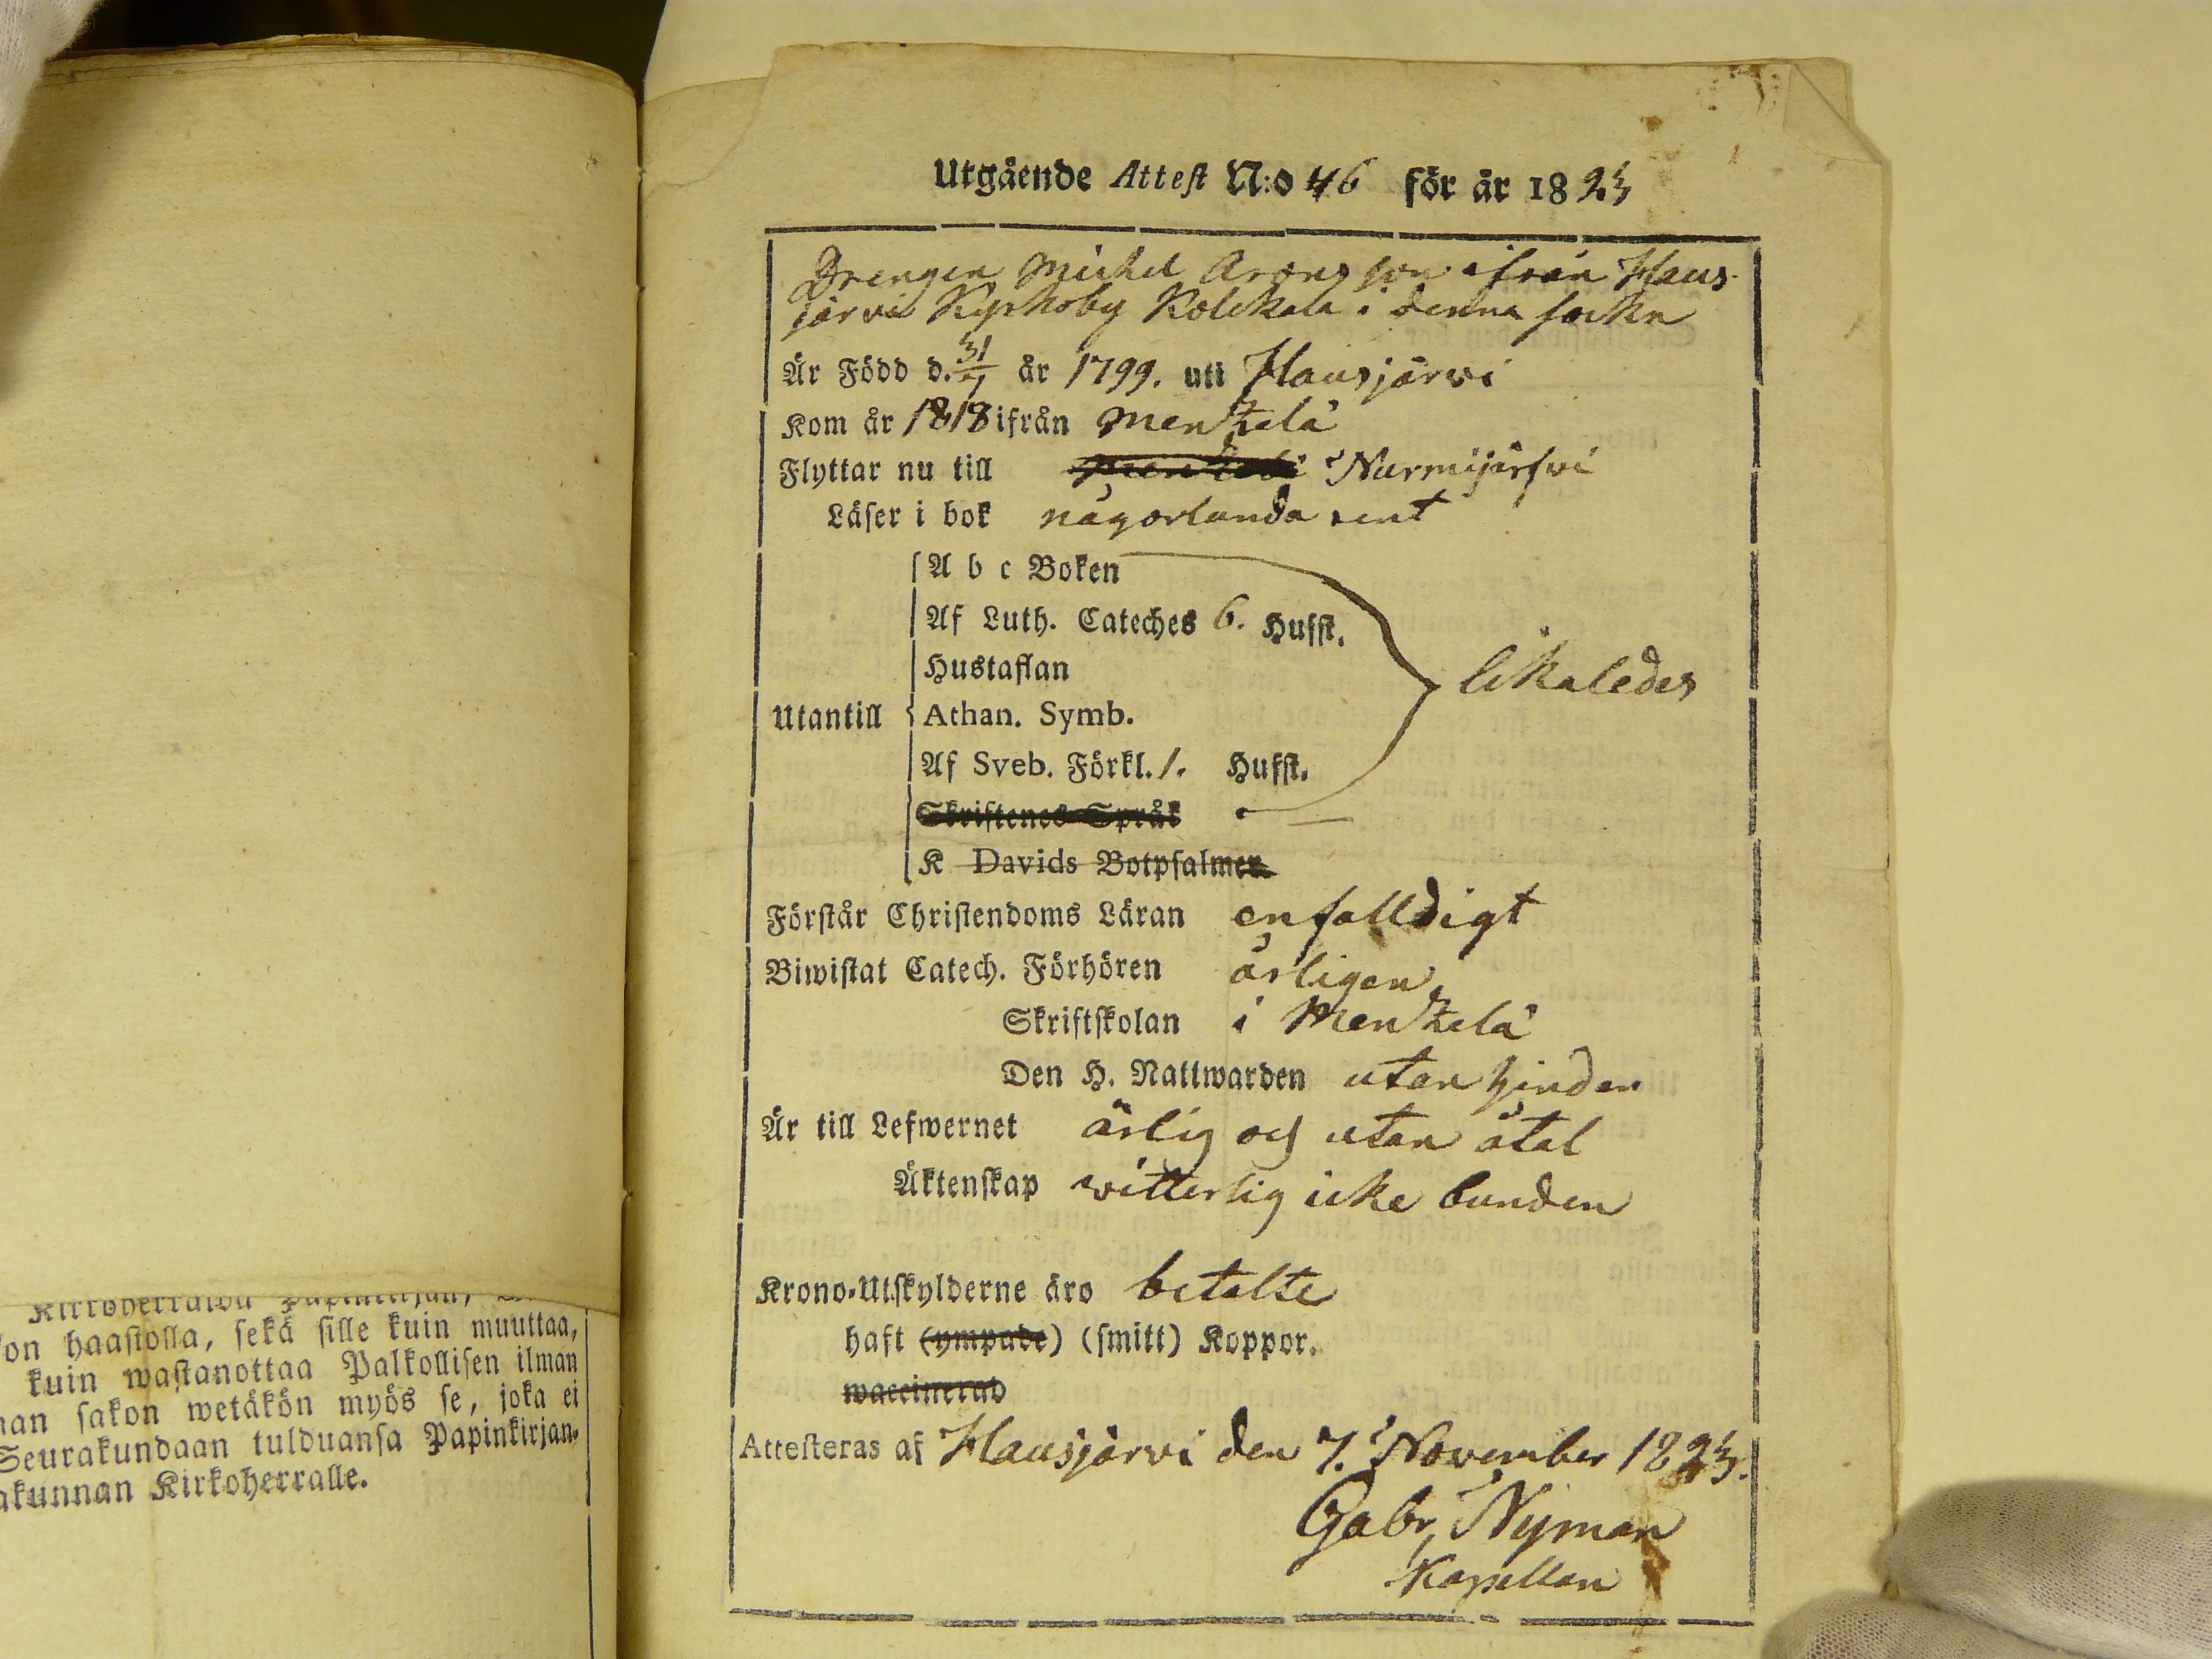 Kirkoherralda Papinkirjan,
on haastolla, sekä sille kuin muuttaa,
kuin wastanottaa Palkollisen ilman
nan sakon wetäkön myös se, joka ei
Seurakundaan tulduansa Papinkirjan-
akunnan Kirkoherralle.
Utgående Attest N:o 46 för år 1823
Drengen Michel Aronsson ifrån Haus-
järvi Kyrkoby Kolckala i denna sockn
Är Född d. 31/7 år 1799. uti Hausjärvi
Kom år 1818 ifrån Mentzelä
Flyttar nu till Nurmijärfwi
Läser i bok någorlunda rent
A b c Boken
Af Luth. Cateches 6. Hufst.
Hustaflan
likaledes
Utantill Athan. Symb.
Af Sveb. Förkl. 1. Hufst.
Skriftenes Språk
K Davids Botpsalmer
Förstår Christendoms Läran enfalldigt
Biwistat Catech. Förhören årligen
Skriftskolan i Mentzelä
Den H. Nattwarden utan hinder
Är till Lefwernet ärlig och utan åtal
Äktenskap witterlig icke bunden
Krono-Utskylderne äro betalte
haft (ympade) (smitt) Koppor.
waccinerad
Attesteras af Hausjärvi den 7. November 1823.
Gabr, Nyman
Kapellan